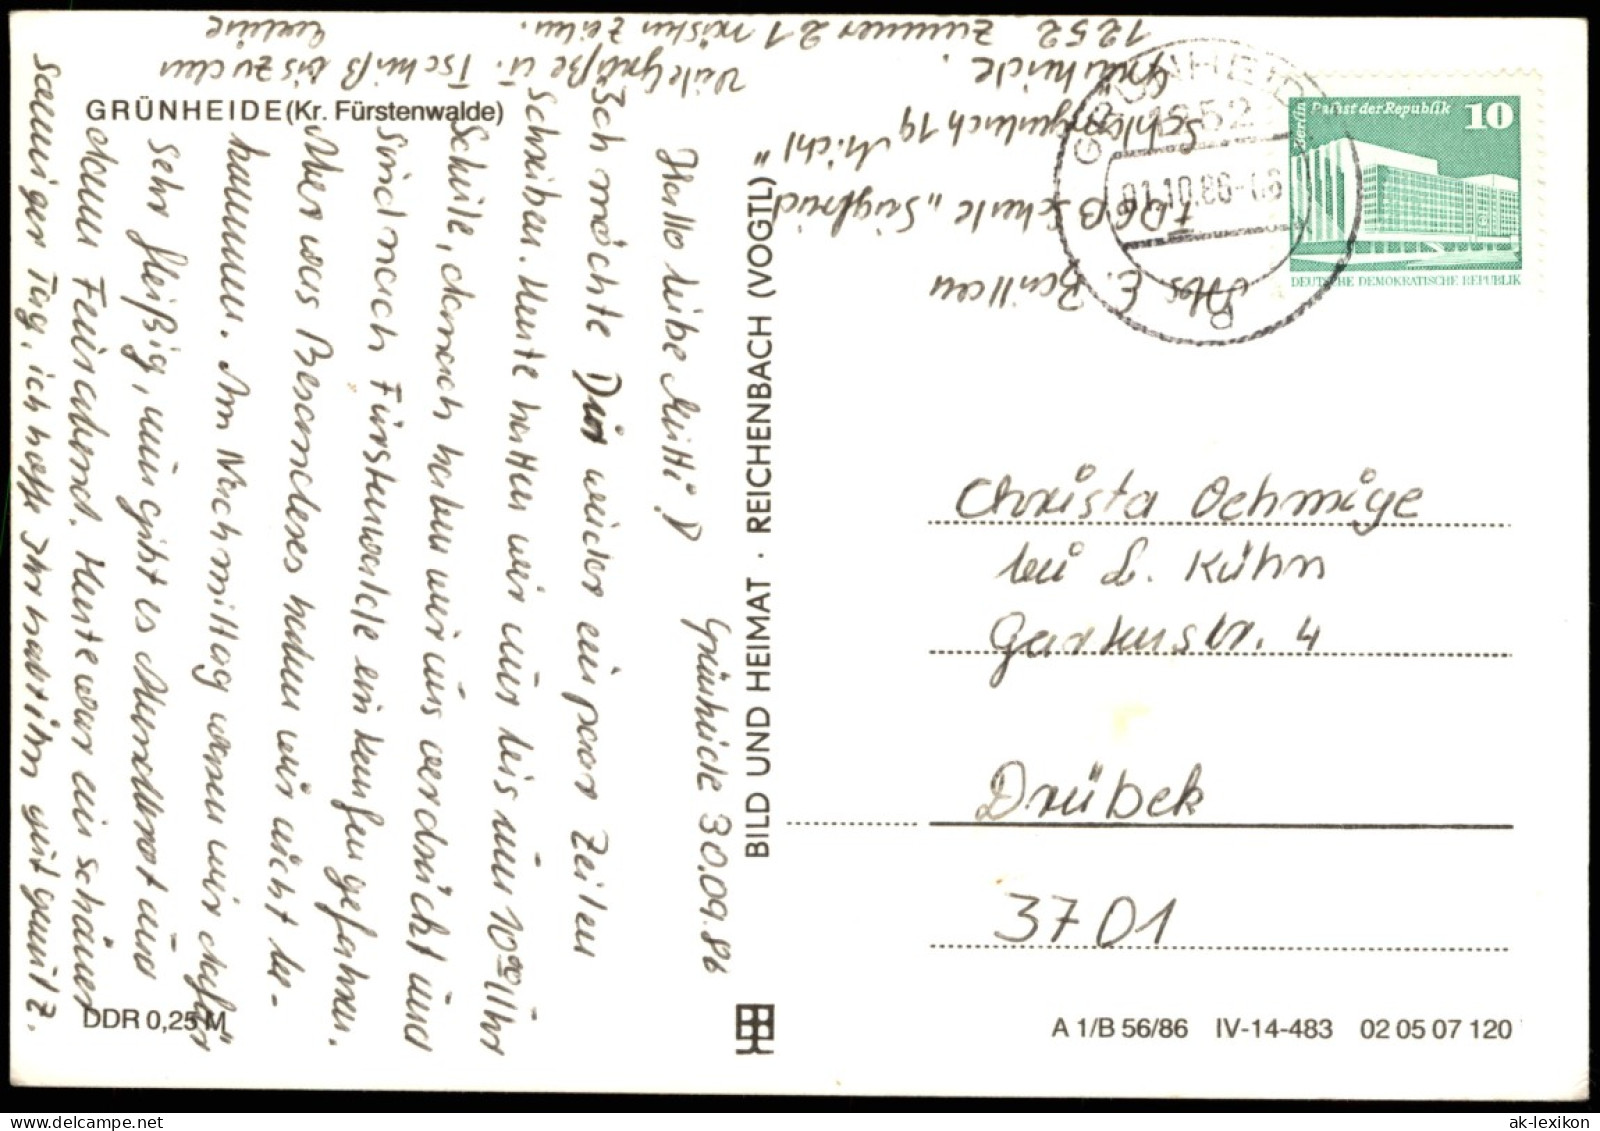 GRÜNHEIDE (Kr. Fürstenwalde)
Grünheide 30.09.86
Hallo liebe Mutti!
Ich möchte Dir wieder ein paar Zeilen
schreiben. Heute hatten wir nur bis um 10⁰⁰ Uhr
Schule, danach haben wir uns verdrückt und
sind nach Fürstenwalde einkaufen gefahren.
Aber was Besonderes haben wir nicht be-
kommen. Am Nachmittag waren wir dafür
sehr fleißig, nun gibt es Abendbrot und
dann Feierabend. Heute war ein schöner
sonniger Tag, ich hoffe Ihr hattet ihn gut genutz.
Viele Grüße u. Tschüß bis zu den
nästen Zeilen.
Abs E.
FDGB Schule „Siegfried
1252
Zimmer 21
BILD UND HEIMAT · REICHENBACH (VOGTL)
GRÜNHEIDE
1252
01.10.86
Berlin Palast der Republik 10
DEUTSCHE DEMOKRATISCHE REPUBLIK
Christa Oehmige
bei L. Kühn
Gartenstr. 4
Drübek
3701
DDR 0,25 M
A 1/B 56/86 IV-14-483 02 05 07 120
ak-lexikon